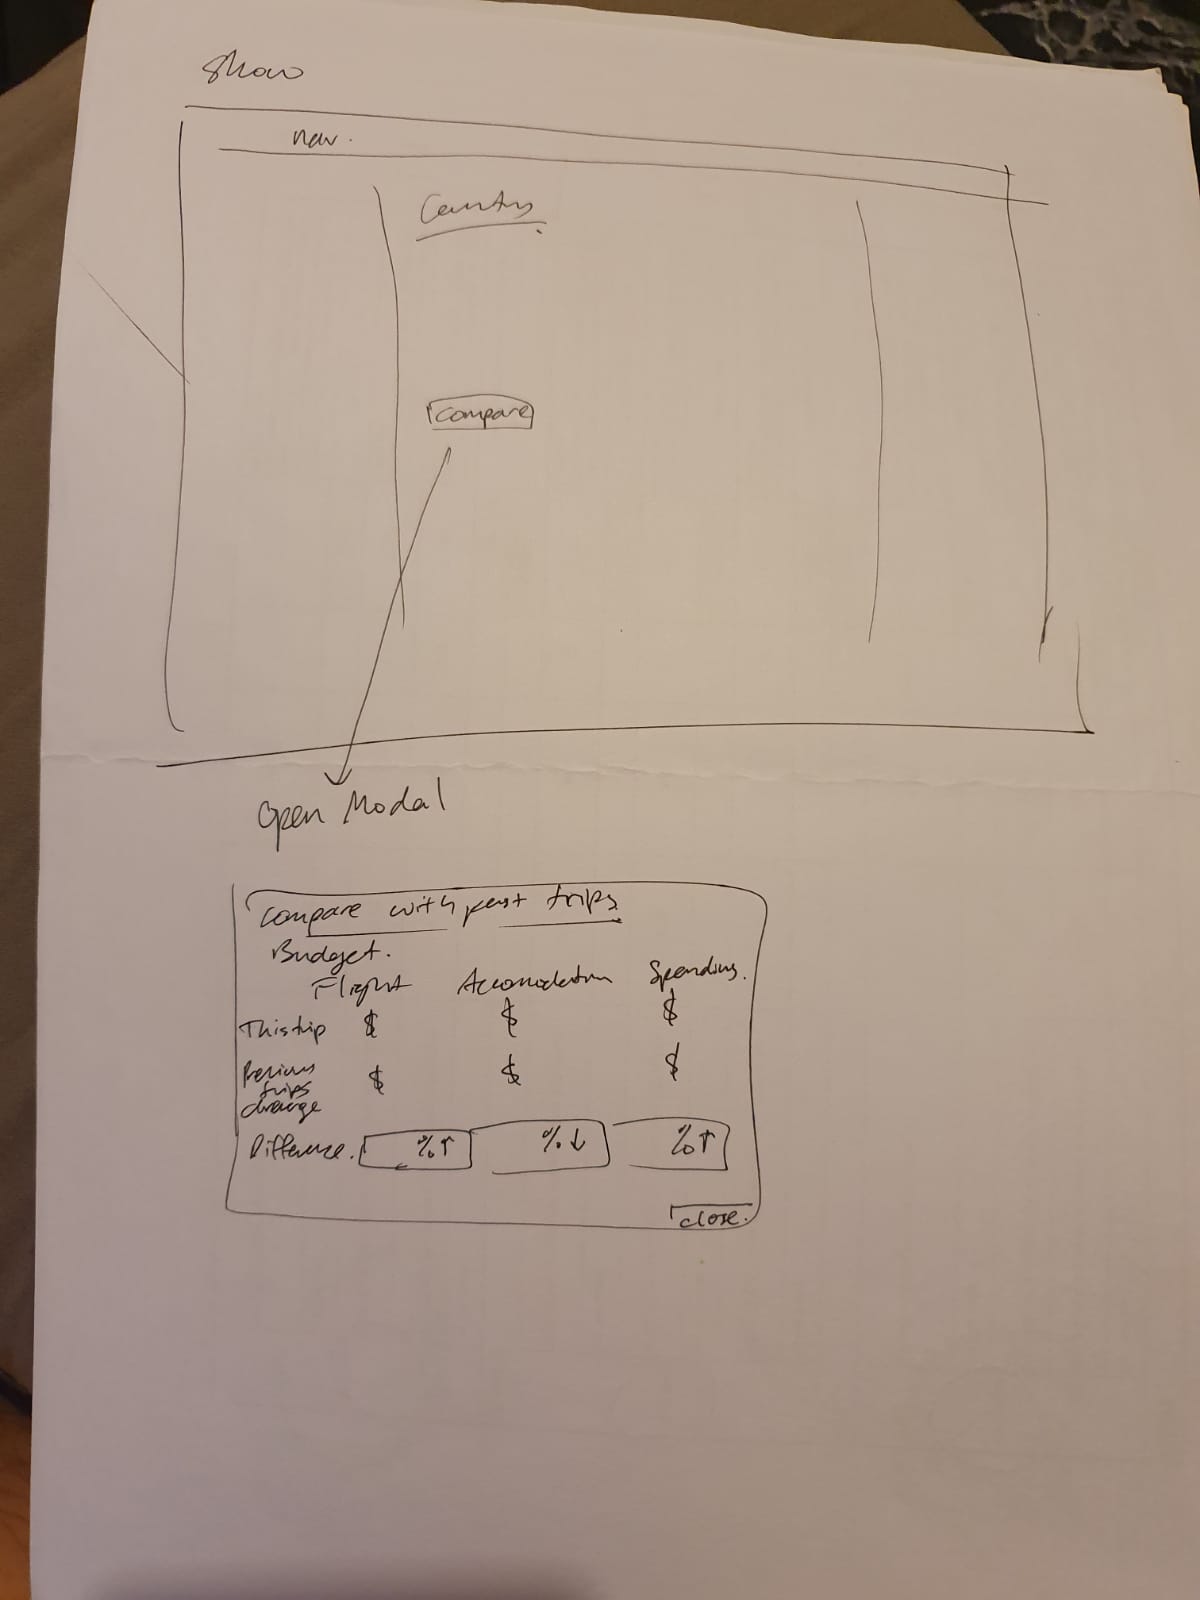 Show
nav.
Country
Compare
Open Modal
Compare with past trips
Budget.
Flight Accomodation Spending.
This trip $ $ $
Previous $ $ $
trips
average
Difference. %↑ %↓ %↑
close.